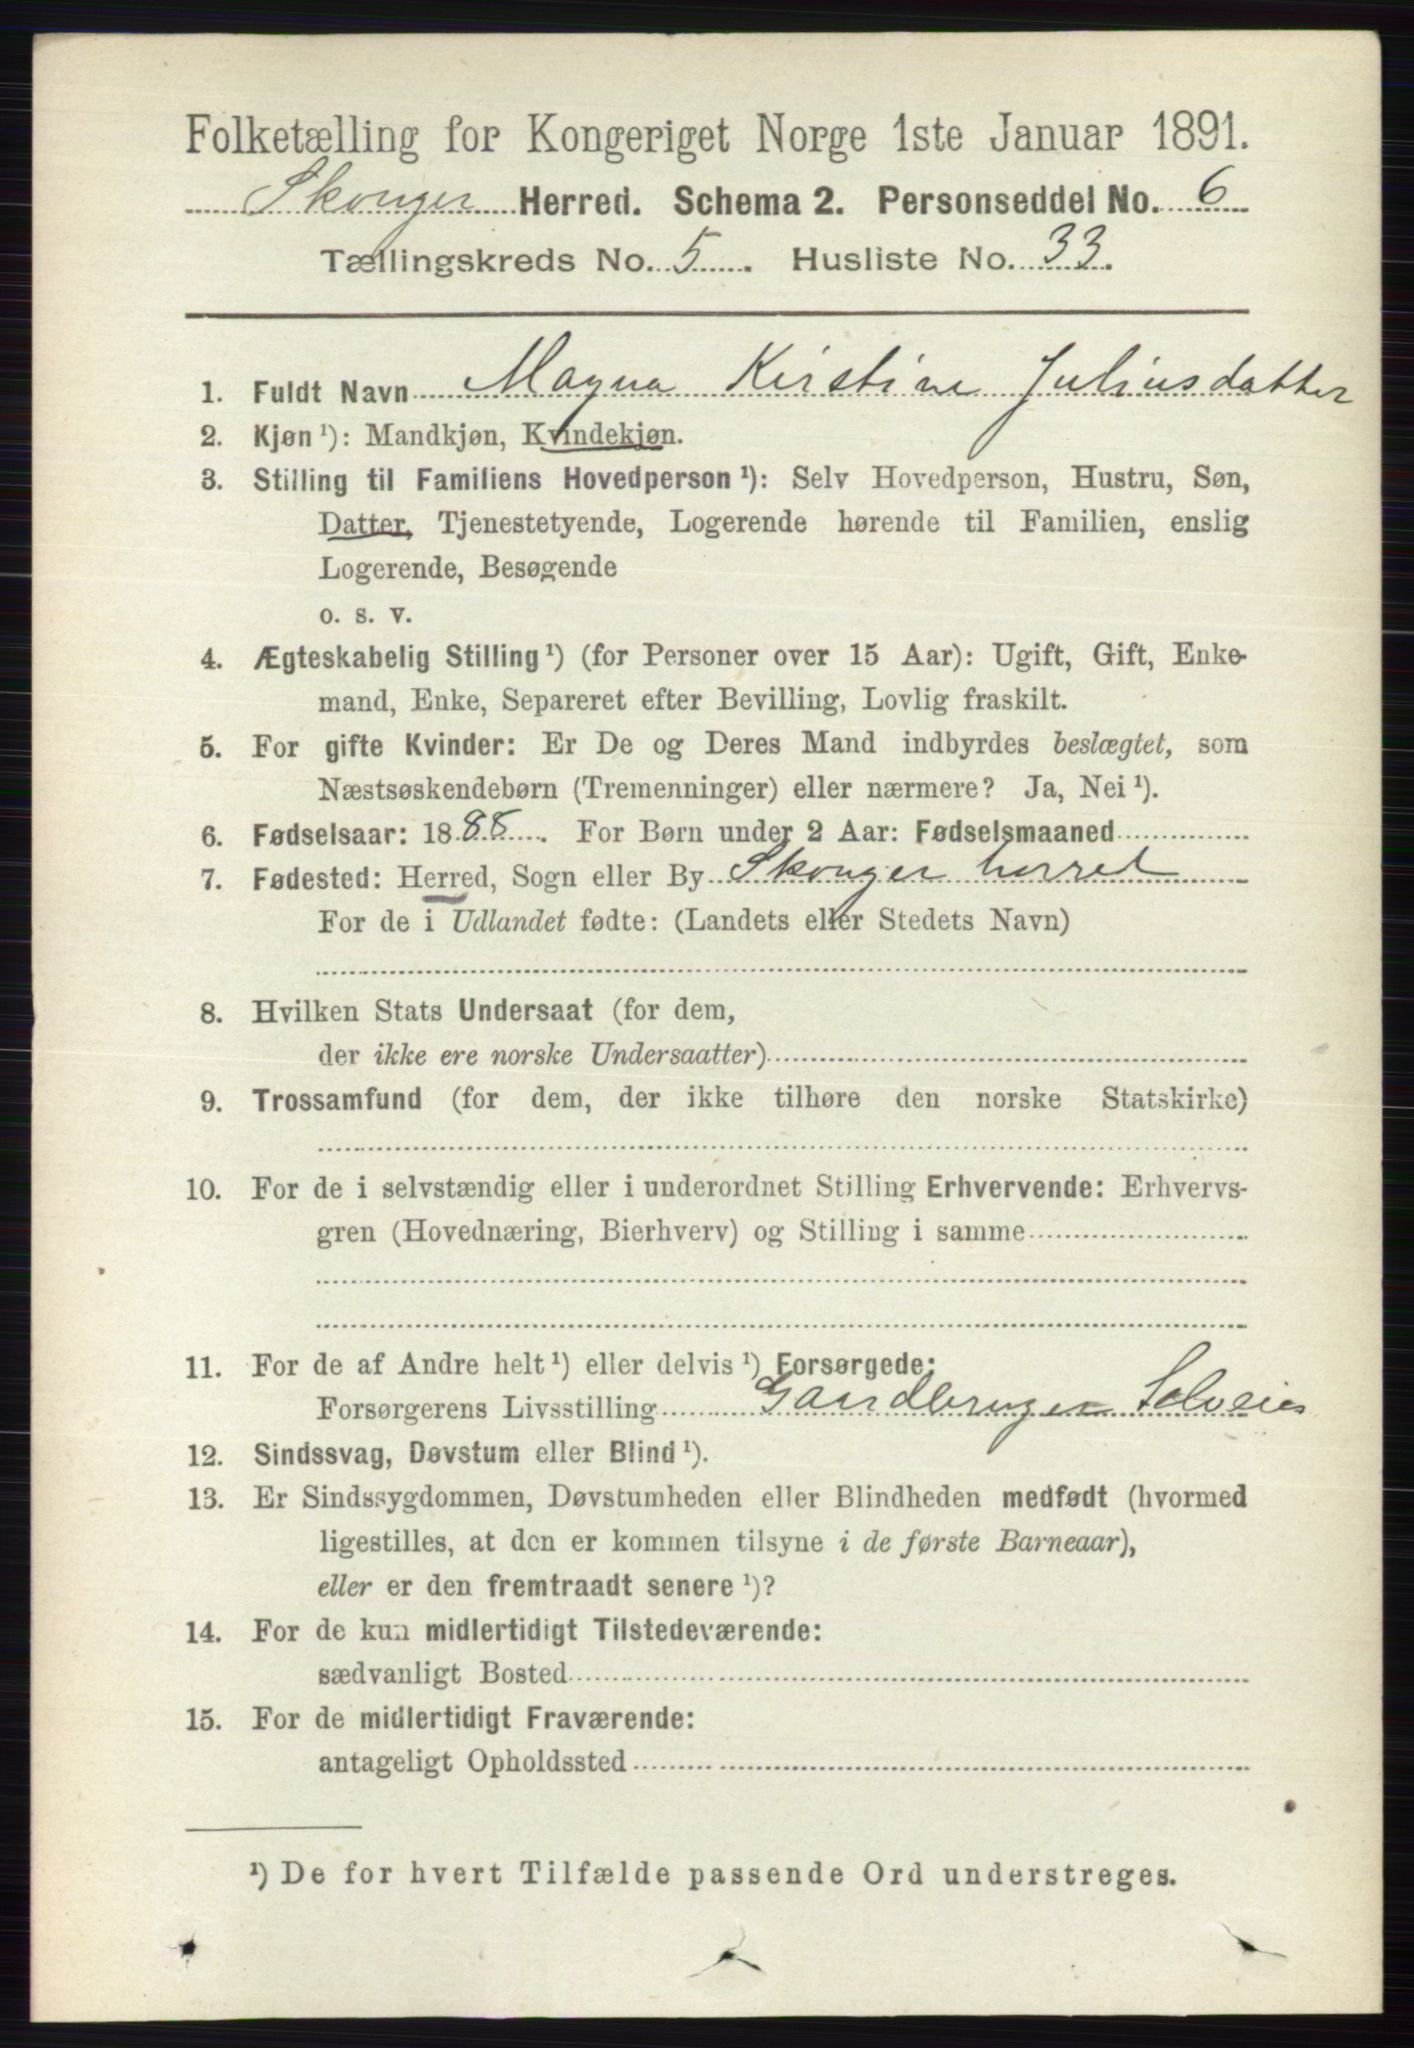 Folketælling for Kongeriget Norge 1ste Januar 1891.
Skonger Herred. Schema 2. Personseddel No. 6
Tællingskreds No. 5. Husliste No. 33.
1. Fuldt Navn Magna Kirstine Juliusdatter
2. Kjøn ¹): Mandkjøn, Kvindekjøn.
3. Stilling til Familiens Hovedperson ¹): Selv Hovedperson, Hustru, Søn,
Datter, Tjenestetyende, Logerende hørende til Familien, enslig
Logerende, Besøgende
o. s. v.
4. Ægteskabelig Stilling ¹) (for Personer over 15 Aar): Ugift, Gift, Enke-
mand, Enke, Separeret efter Bevilling, Lovlig fraskilt.
5. For gifte Kvinder: Er De og Deres Mand indbyrdes beslægtet, som
Næstsøskendebørn (Tremenninger) eller nærmere? Ja, Nei ¹).
6. Fødselsaar: 1888. For Børn under 2 Aar: Fødselsmaaned
7. Fødested: Herred, Sogn eller By Skonger herred
For de i Udlandet fødte: (Landets eller Stedets Navn)
8. Hvilken Stats Undersaat (for dem,
der ikke ere norske Undersaatter)
9. Trossamfund (for dem, der ikke tilhøre den norske Statskirke)
10. For de i selvstændig eller i underordnet Stilling Erhvervende: Erhvervs-
gren (Hovednæring, Bierhverv) og Stilling i samme
11. For de af Andre helt ¹) eller delvis ¹) Forsørgede:
Forsørgerens Livsstilling Gaardbruger Selveier
12. Sindssvag, Døvstum eller Blind ¹).
13. Er Sindssygdommen, Døvstumheden eller Blindheden medfødt (hvormed
ligestilles, at den er kommen tilsyne i de første Barneaar),
eller er den fremtraadt senere ¹)?
14. For de kun midlertidigt Tilstedeværende:
sædvanligt Bosted
15. For de midlertidigt Fraværende:
antageligt Opholdssted
¹) De for hvert Tilfælde passende Ord understreges.